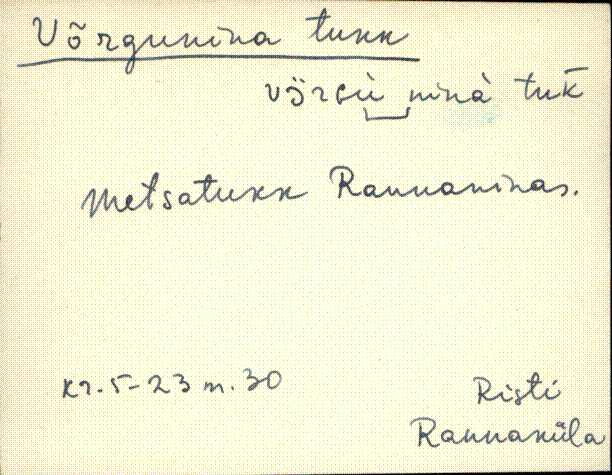 Võrgunina tukk
võrɢù ninà tuk̄
Metsatukk Rannaninas.
Kr. 5-23 m. 30
Risti
Rannaküla